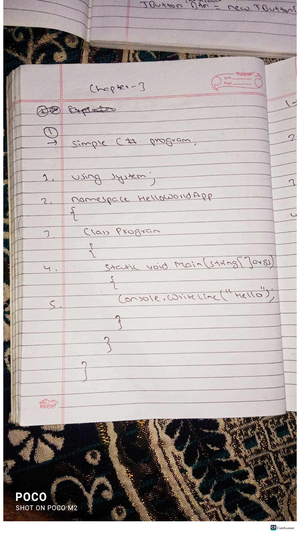 JButton btn = new JButton(
Chapter-3
①
→ Simple C# program.
1. Using System;
2. namespace HelloWorldApp
{
3. Class Program
{
4. Static void Main(string[]args)
{
5. Console.WriteLine("Hello");
}
}
}
POCO
SHOT ON POCO M2
CamScanner